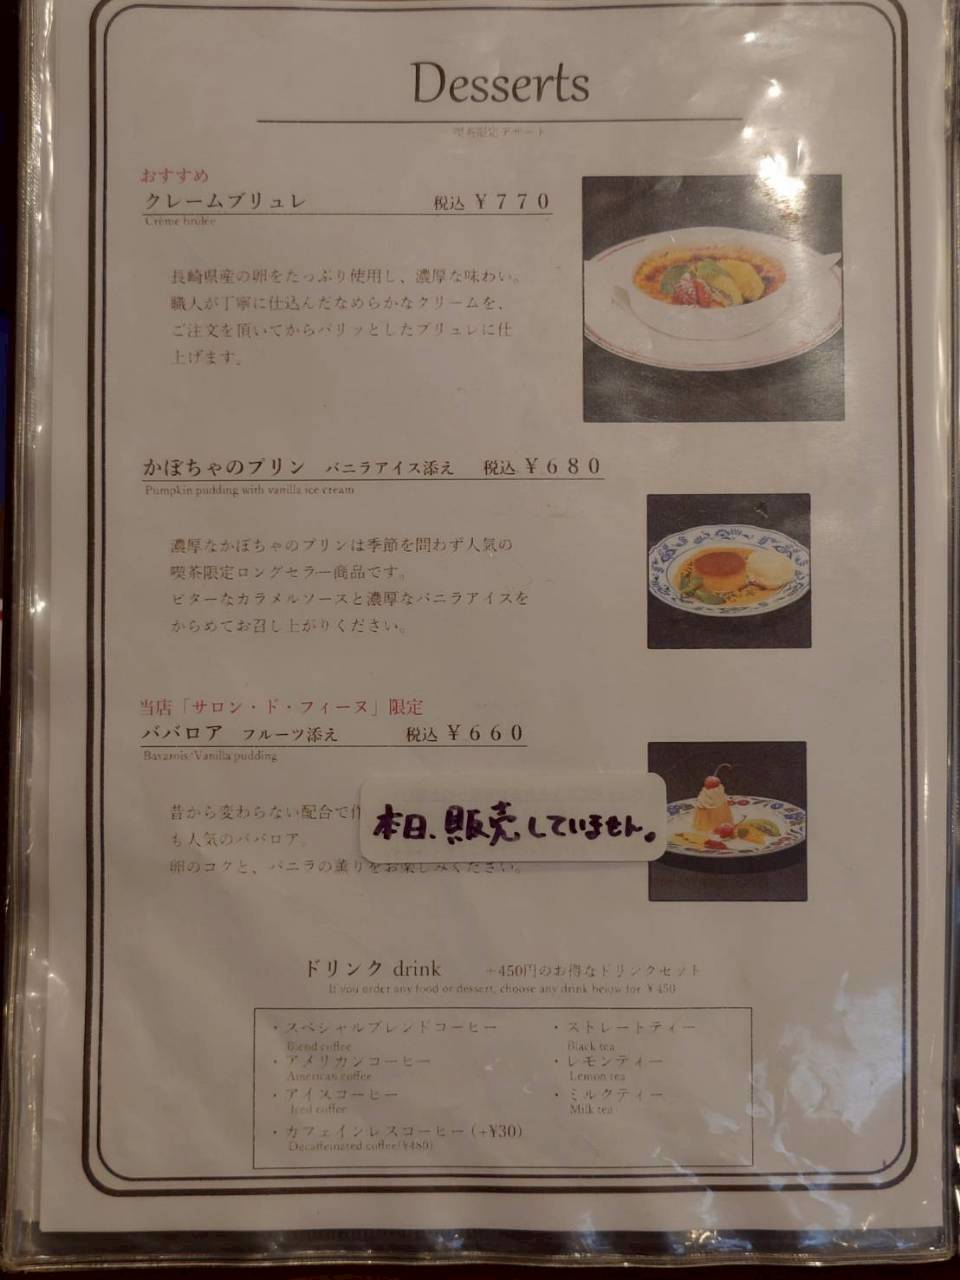 Desserts
喫茶限定デザート
おすすめ
クレームブリュレ 税込 ¥770
Crème brulée
長崎県産の卵をたっぷり使用し、濃厚な味わい。
職人が丁寧に仕込んだなめらかなクリームを、
ご注文を頂いてからパリッとしたブリュレに仕
上げます。
かぼちゃのプリン バニラアイス添え 税込 ¥680
Pumpkin pudding with vanilla ice cream
濃厚なかぼちゃのプリンは季節を問わず人気の
喫茶限定ロングセラー商品です。
ビターなカラメルソースと濃厚なバニラアイスを
からめてお召し上がりください。
当店「サロン・ド・フィーヌ」限定
ババロア フルーツ添え 税込 ¥660
Bavarois/Vanilla pudding
昔から変わらない配合で
本日、販売していません。
も人気のババロア。
卵のコクと、バニラの薫りをお楽しみください。
ドリンク drink +450円のお得なドリンクセット
If you order any food or dessert, choose any drink below for ¥450
・スペシャルブレンドコーヒー
Blend coffee
・アメリカンコーヒー
American coffee
・アイスコーヒー
Iced coffee
・カフェインレスコーヒー(+¥30)
Decaffeinated coffee(¥480)
・ストレートティー
Black tea
・レモンティー
Lemon tea
・ミルクティー
Milk tea